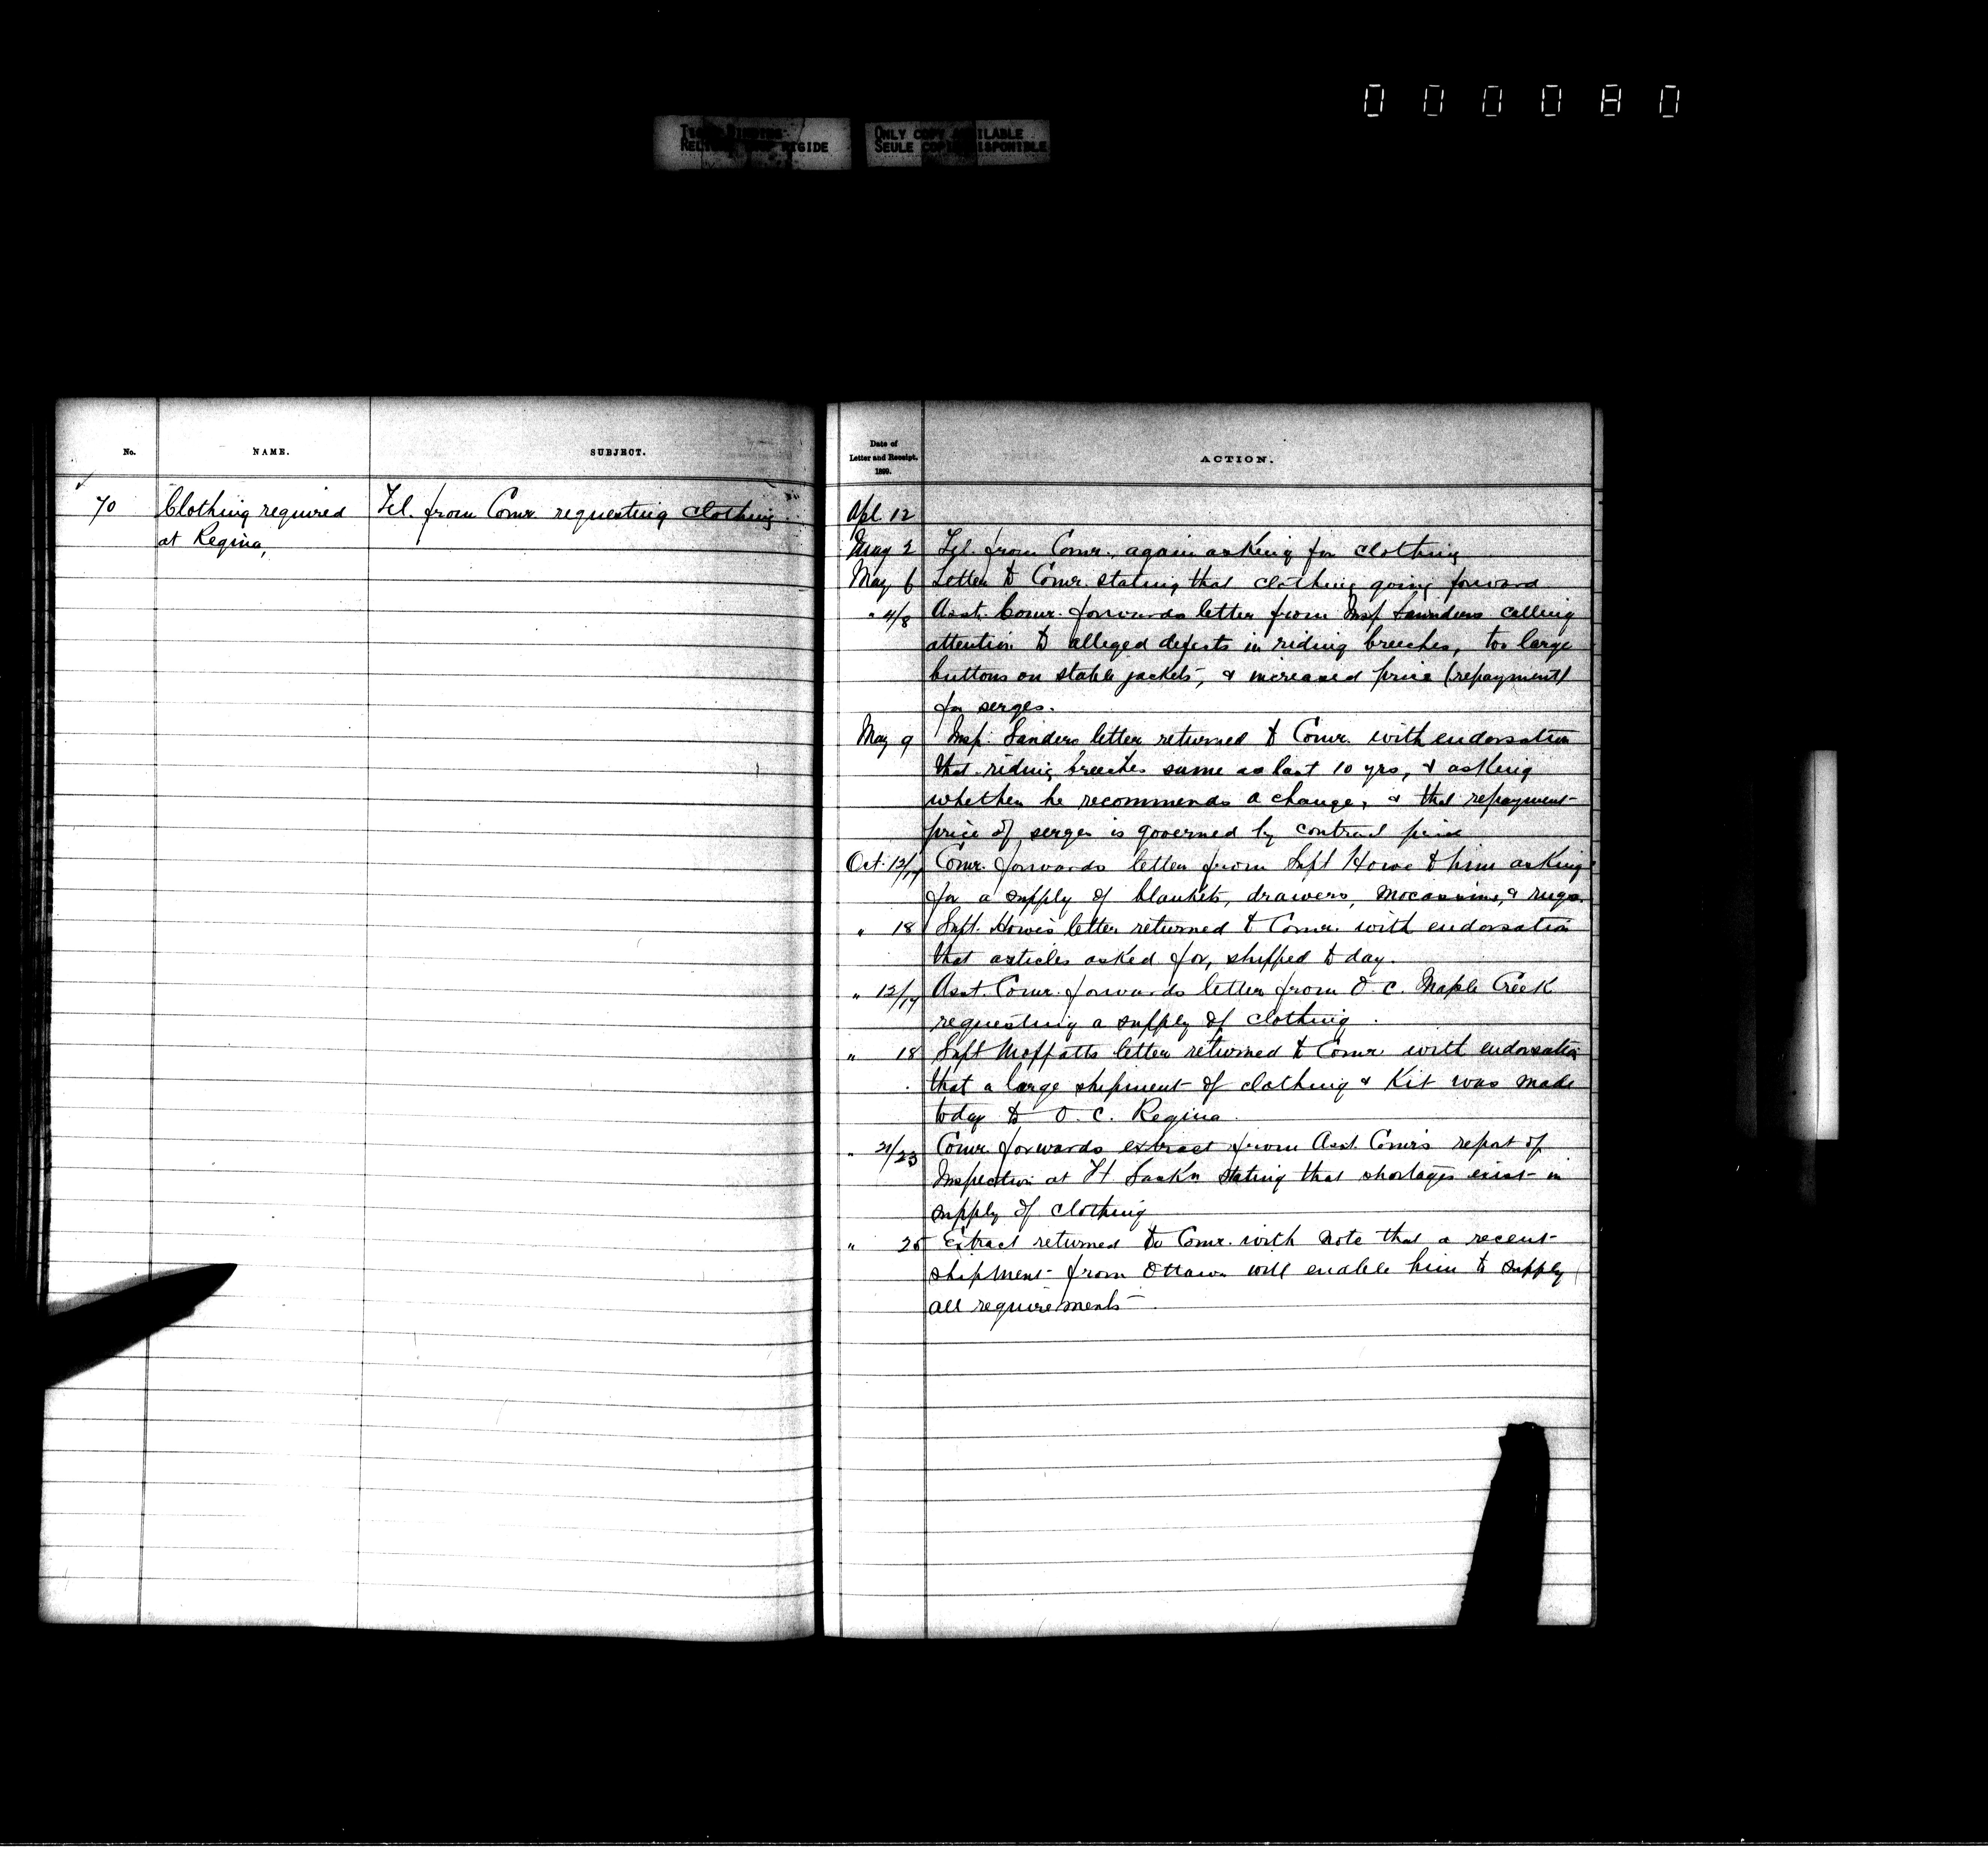 000080
TIGHT BINDING
RELIURE TROP RIGIDE
ONLY COPY AVAILABLE
SEULE COPIE DISPONIBLE
No.
NAME.
SUBJECT.
70
Clothing required
at Regina,
Tel. from Comr. requesting clothing.
Date of
Letter and Receipt.
1899.
ACTION.
Apl. 12
May 2 Tel. from Comr. again asking for clothing
May 6 Letter to Comr. stating that clothing going forward
" 4/8 Asst. Comr. forwards letter from Insp Saunders calling
attention to alleged defects in riding breeches, too large
buttons on stable jackets, & increased price (repayment)
for serges.
May 9 Insp. Sanders letter returned to Comr. with endorsation
that riding breeches same as last 10 yrs, & asking
whether he recommends a change, & that repayment
price of serges is governed by contract price
Oct. 12/17 Comr. forwards letter from Supt Howe to him asking
for a supply of blankets, drawers, mocassins, & rugs.
" 18 Supt. Howe's letter returned to Comr. with endorsation
that articles asked for, shipped to day.
" 12/17 Asst. Comr. forwards letter from O. C. Maple Creek
requesting a supply of clothing.
" 18 Supt Moffatts letter returned to Comr. with endorsation
that a large shipment of clothing & Kit was made
today to O. C. Regina.
" 21/23 Comr. forwards extract from Asst. Comr's report of
Inspection at Ft Saskn stating that shortages exist in
supply of clothing
" 25 Extract returned to Comr. with note that a recent
shipment from Ottawa will enable him to supply
all requirements.